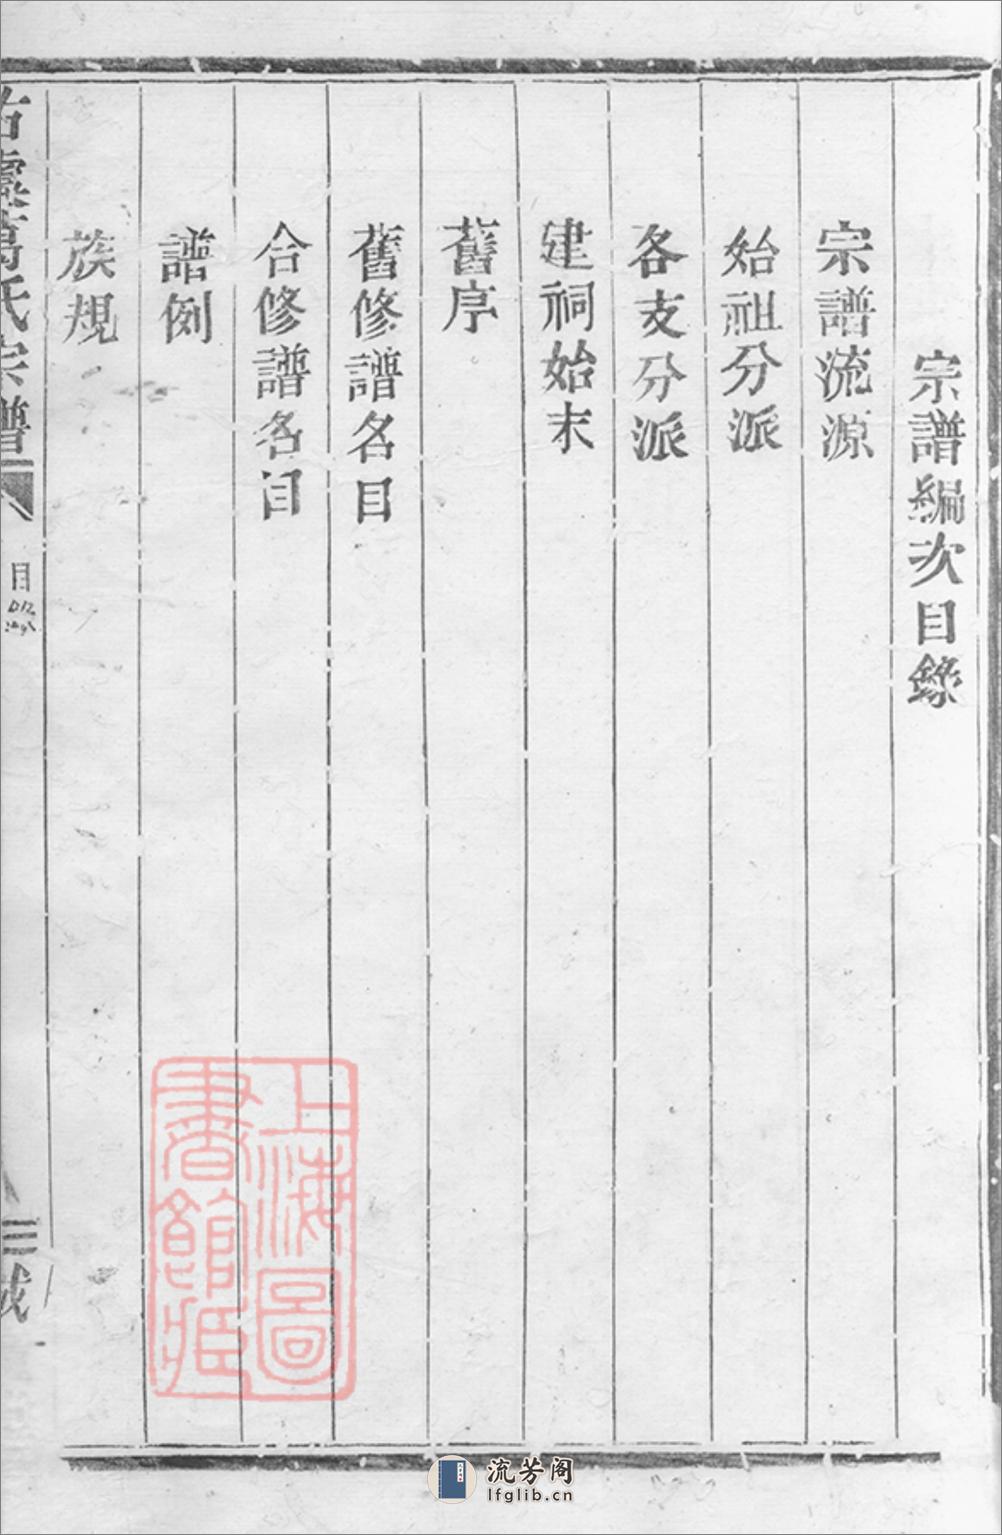 宗譜編次目錄
宗譜流源
始祖分派
各支分派
建祠始末
舊序
舊修譜名目
合修譜名目
譜例
族規
氏宗譜
目
三
上海圖
書館藏
流芳阁
lfglib.cn